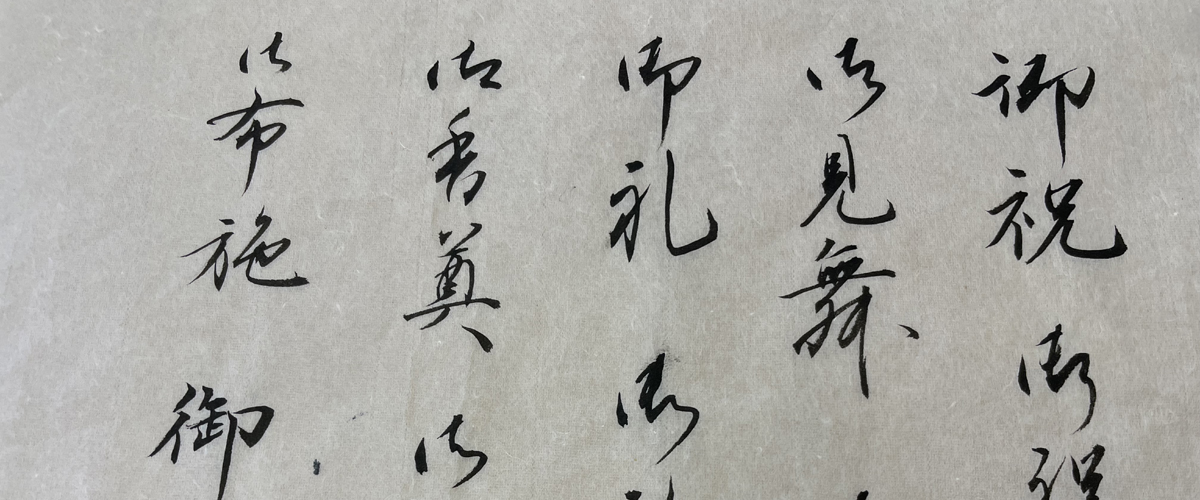 御祝 御祝
御見舞
御礼 御
御香奠 御
御布施 御